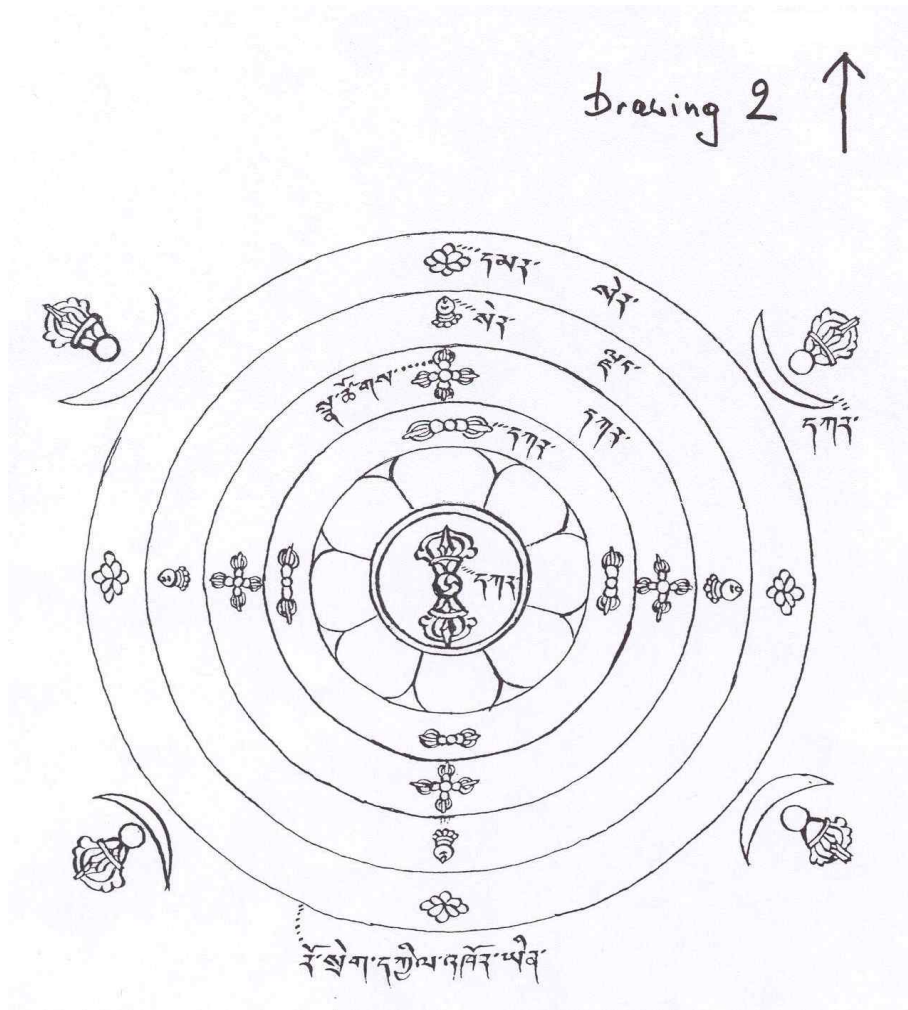 Drawing 2
དམར་
སེར་
སེར་
སྣ་ཚོགས་
དཀར་
དཀར་
དཀར་
དཀར་
རོ་སྲེག་དཀྱིལ་འཁོར་ཡིན་